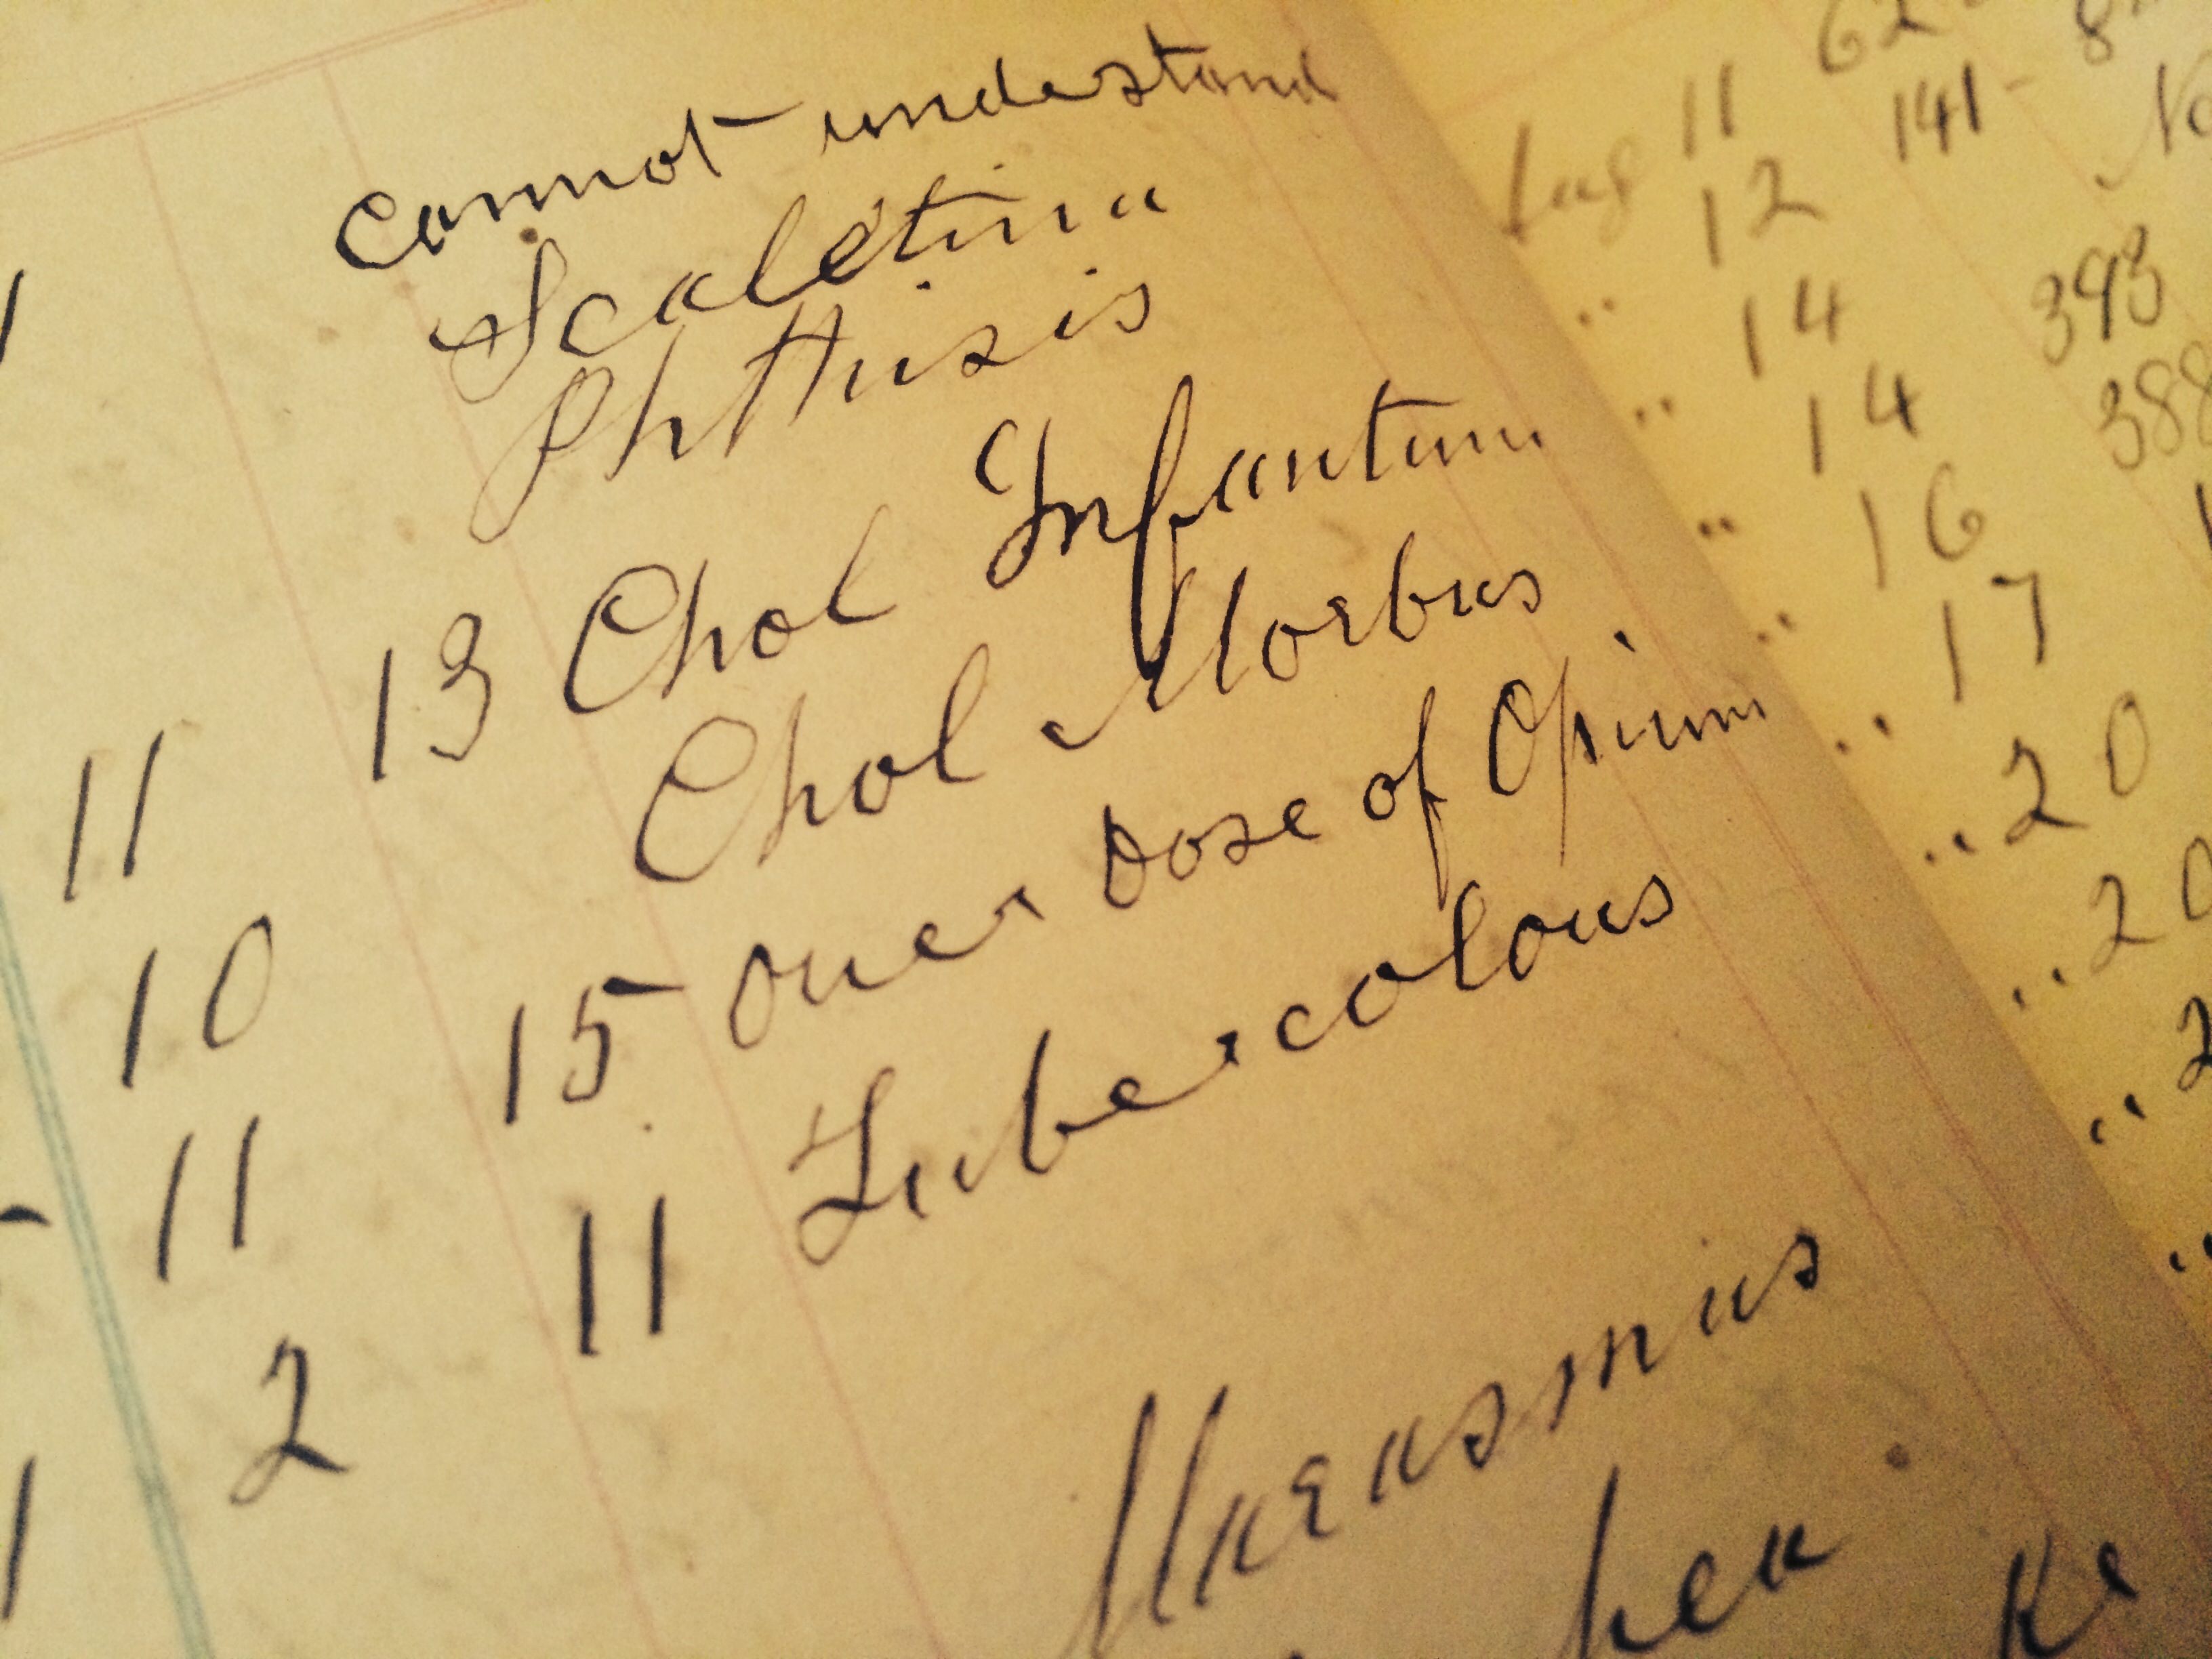 cannot understand
Scaletina
Phthisis
11 13 Chol Infantum
10 Chol Morbus
11 15 Over Dose of Opium
2 11 Tubercolous
Marasmus
hea
Aug 11 62
12 141
" 14 393
" 14 388
" 16
" 17
" 20
" 20
" 2